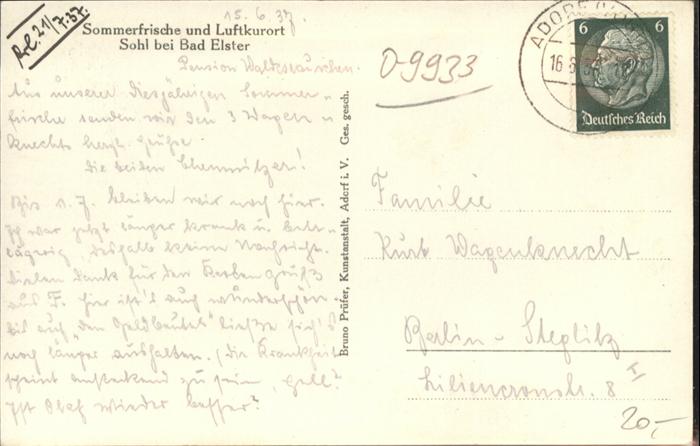 Rel. 21/7.37.
15.6.37.
Sommerfrische und Luftkurort
Sohl bei Bad Elster
Pension Waldesrauschen.
Aus unserer diesjährigen Sommer-
frische senden wir den 3 Wagen-
knechts herzl. Grüße.
Die beiden Chemnitzer!
Bis 1.7. bleiben wir noch hier.
Ich war jetzt länger krank u. bett-
lägerig deshalb keine Nachricht.
Vielen Dank für den Grüß
aus F. Hier ist's auch wunderschön
bis auf "den Geldbeutel" ließe sich's
noch länger aushalten. (Die Krankheit
scheint ansteckend zu sein, gell?
Ist Olaf wieder besser?
Bruno Prüfer, Kunstanstalt, Adorf i. V. Ges. gesch.
0-9933
ADORF (VOGTL
16.6.37
6 6
Deutsches Reich
Familie
Kurt Wagenknecht
Berlin-Steglitz
Liliencronstr. 8 I
20,-